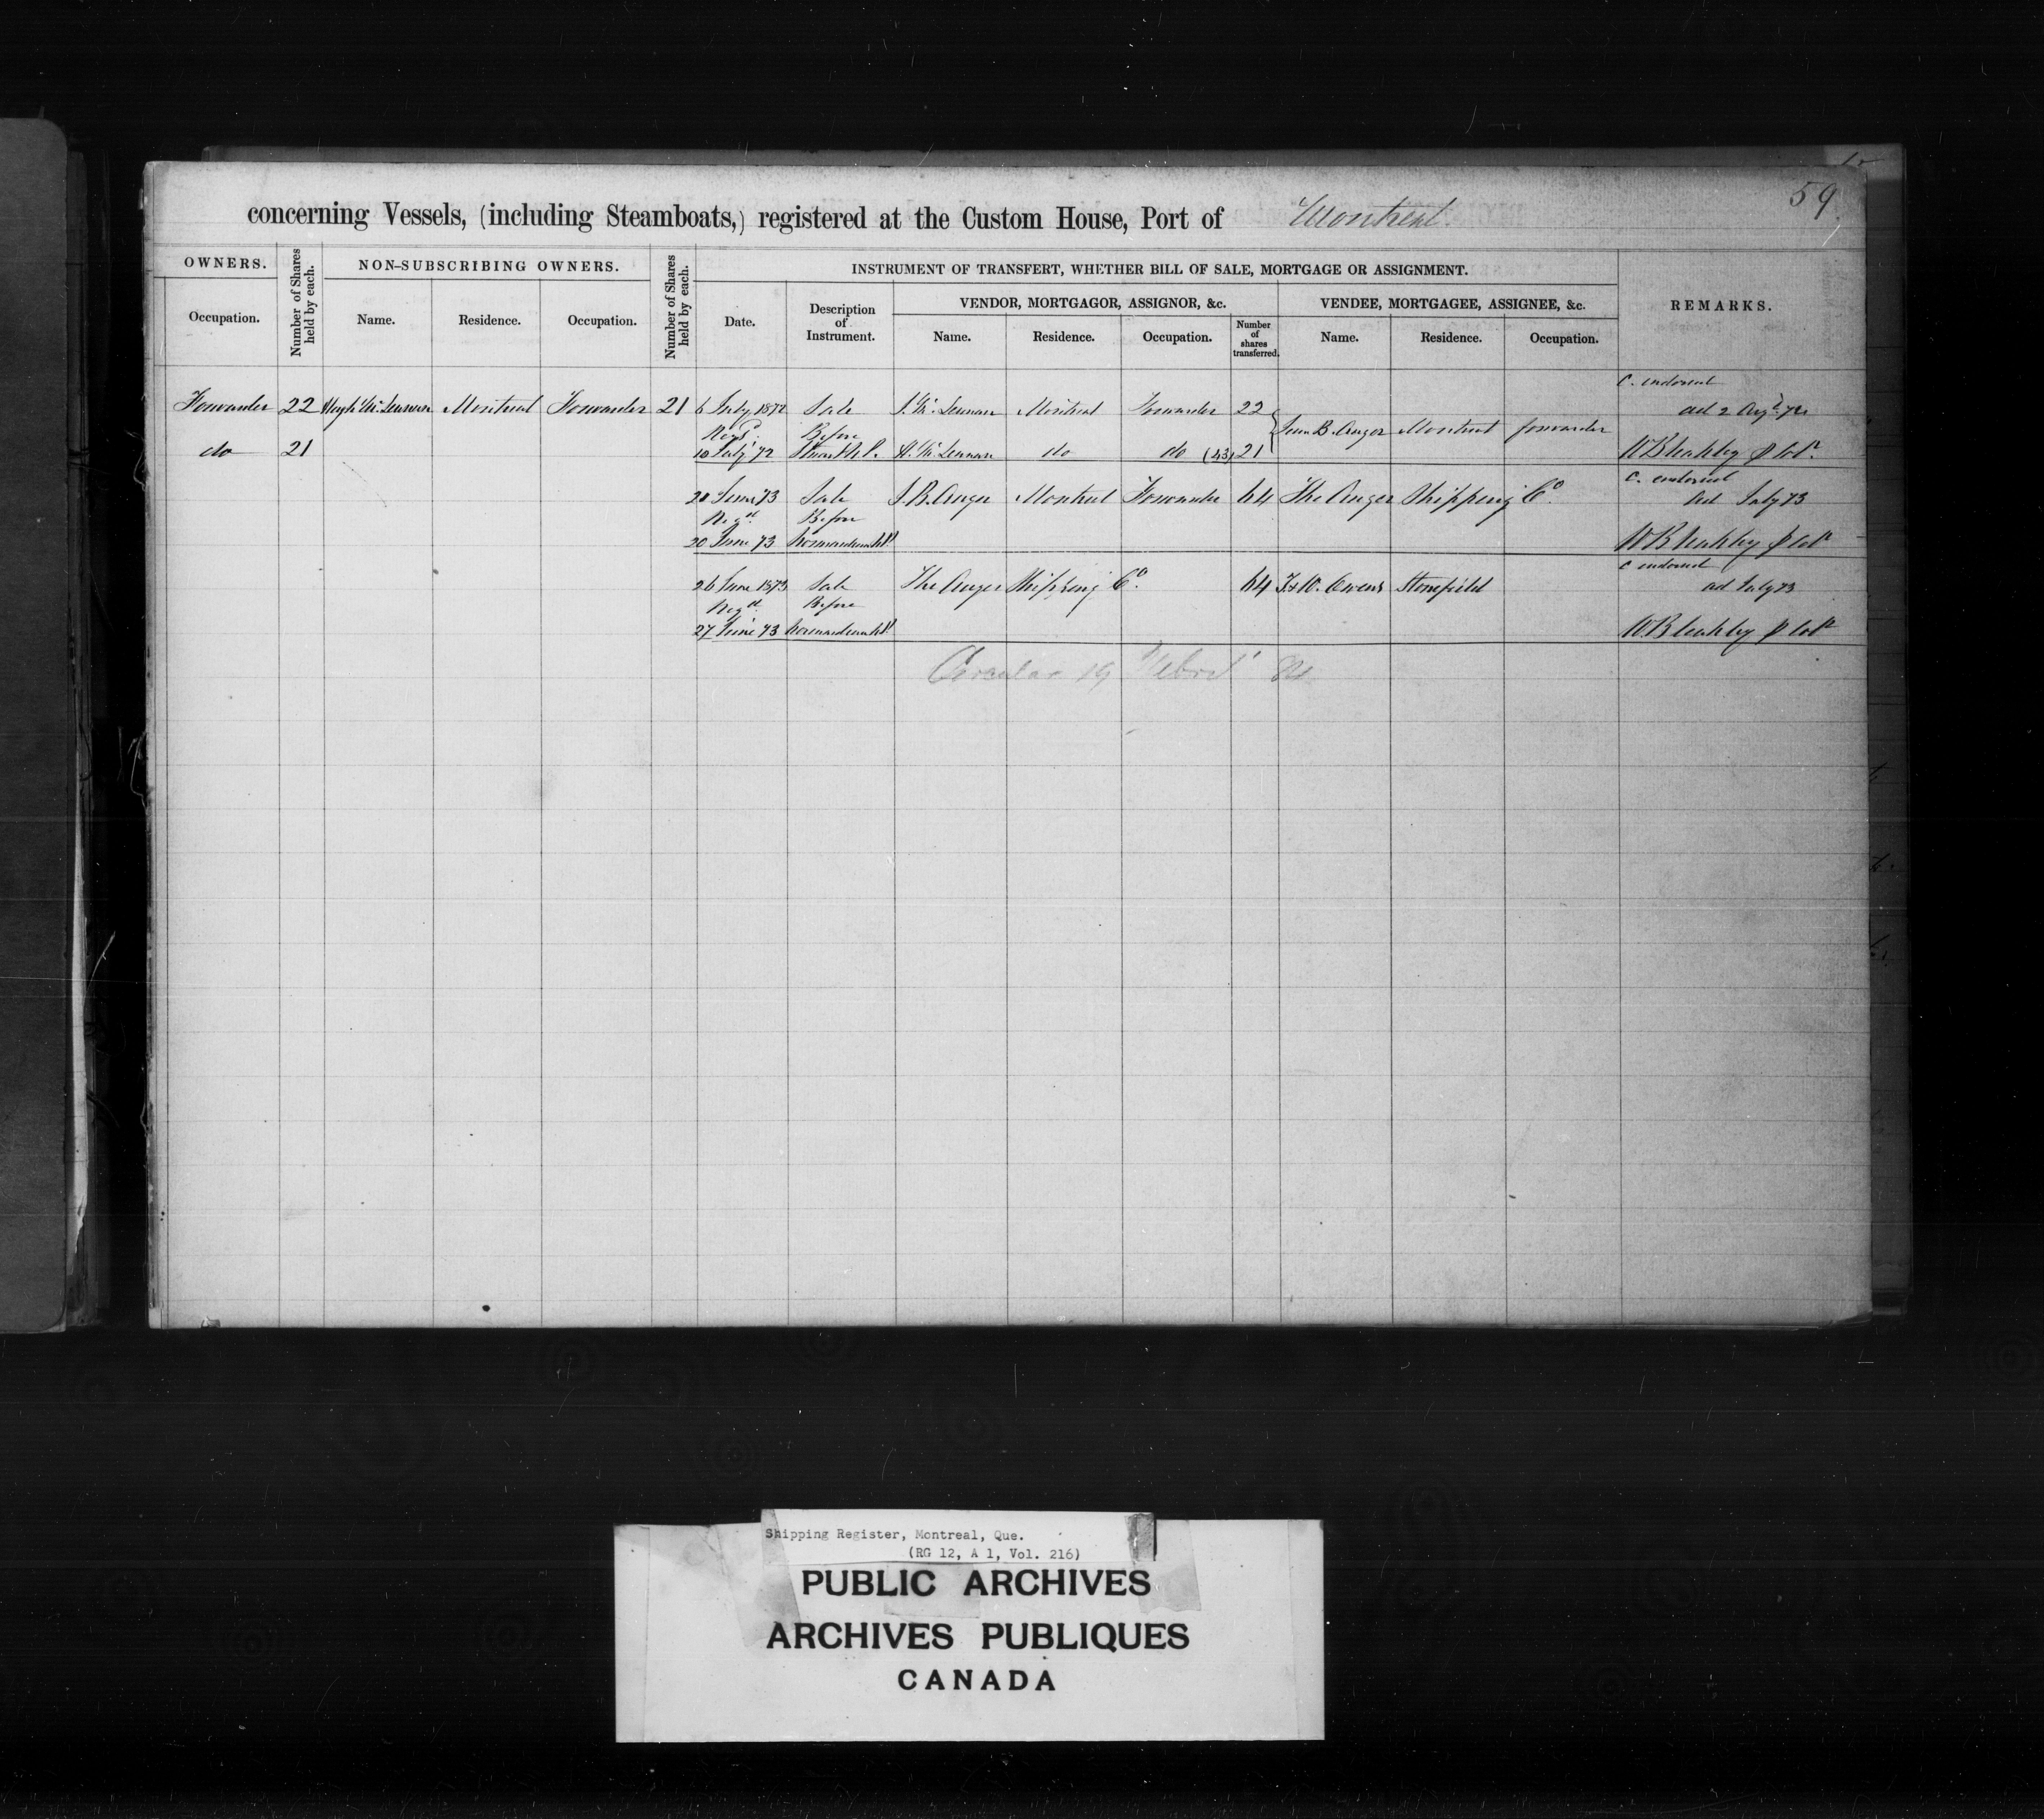 59
concerning Vessels, (including Steamboats,) registered at the Custom House, Port of Montreal.
OWNERS. Number of Shares held by each. NON-SUBSCRIBING OWNERS. Number of Shares held by each. INSTRUMENT OF TRANSFERT, WHETHER BILL OF SALE, MORTGAGE OR ASSIGNMENT. REMARKS.
VENDOR, MORTGAGOR, ASSIGNOR, &c. VENDEE, MORTGAGEE, ASSIGNEE, &c.
Occupation. Name. Residence. Occupation. Date. Description of Instrument. Name. Residence. Occupation. Number of shares transferred. Name. Residence. Occupation.
C. endorsed
Forwarder 22 Hugh McLennan Montreal Forwarder 21 6 July 1872 Sale J. McLennan Montreal Forwarder 22 ad 2 Augt 72
Regd Before B. Auger Montreal forwarder
do 21 10 July 72 H. McLennan do do (43) 21 W Bleakley p Colr
C. endorsed
20 June 73 Sale J. B. Auger Montreal Forwarder 64 The Auger Shipping Co. ad July 73
Regd Before
20 June 73 W Bleakley p Colr
C endorsed
26 June 1873 Sale The Auger Shipping Co. 64 T & W. Owens Stonefield ad July 73
Regd Before
27 June 73 W. Bleakley p Colr
Circular 19
Shipping Register, Montreal, Que.
(RG 12, A 1, Vol. 216)
PUBLIC ARCHIVES
ARCHIVES PUBLIQUES
CANADA